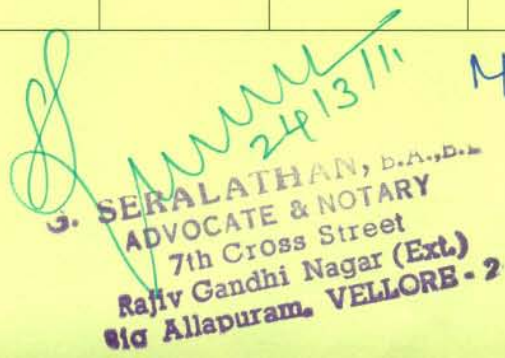 24/3/11
M
G. SERALATHAN, B.A.,B.L
ADVOCATE & NOTARY
7th Cross Street
Rajiv Gandhi Nagar (Ext.)
Allapuram, VELLORE - 2